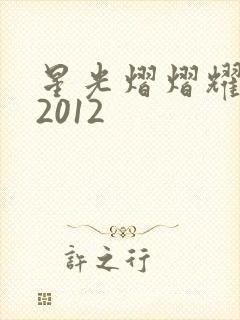 星光熠熠耀
2012
許之行